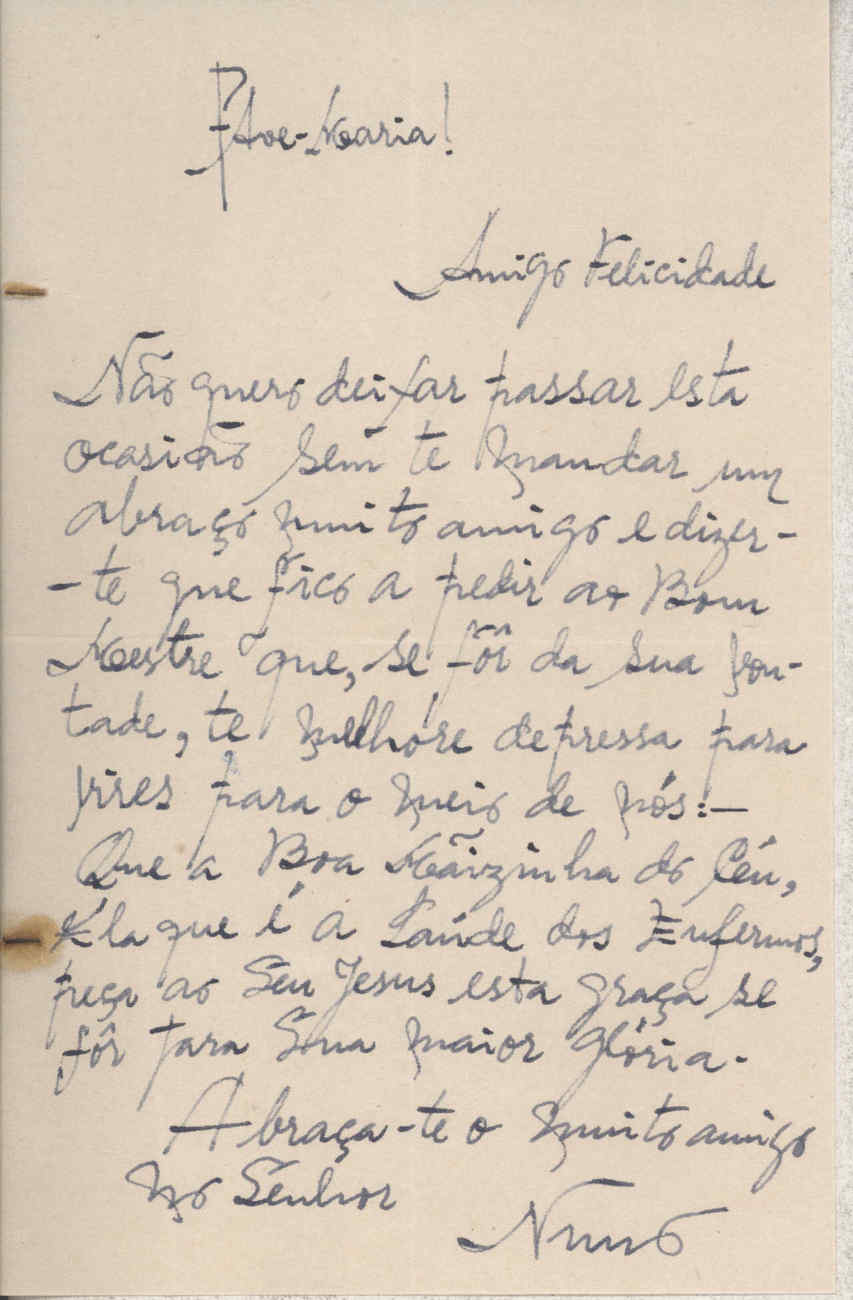 Ave-Maria!
Amigo Felicidade
Não quero deixar passar esta
ocasião sem te mandar um
abraço muito amigo e dizer-
-te que fico a pedir ao Bom
Mestre que, se fôr da sua von-
tade, te melhóre depressa para
vires para o meio de nós:—
Que a Boa Mãizinha do Céu,
Éla que é a Saúde dos Enfermos,
peça ao Seu Jesus esta graça se
fôr para Sua maior Glória.
Abraça-te o muito amigo
no Senhor
Nuno